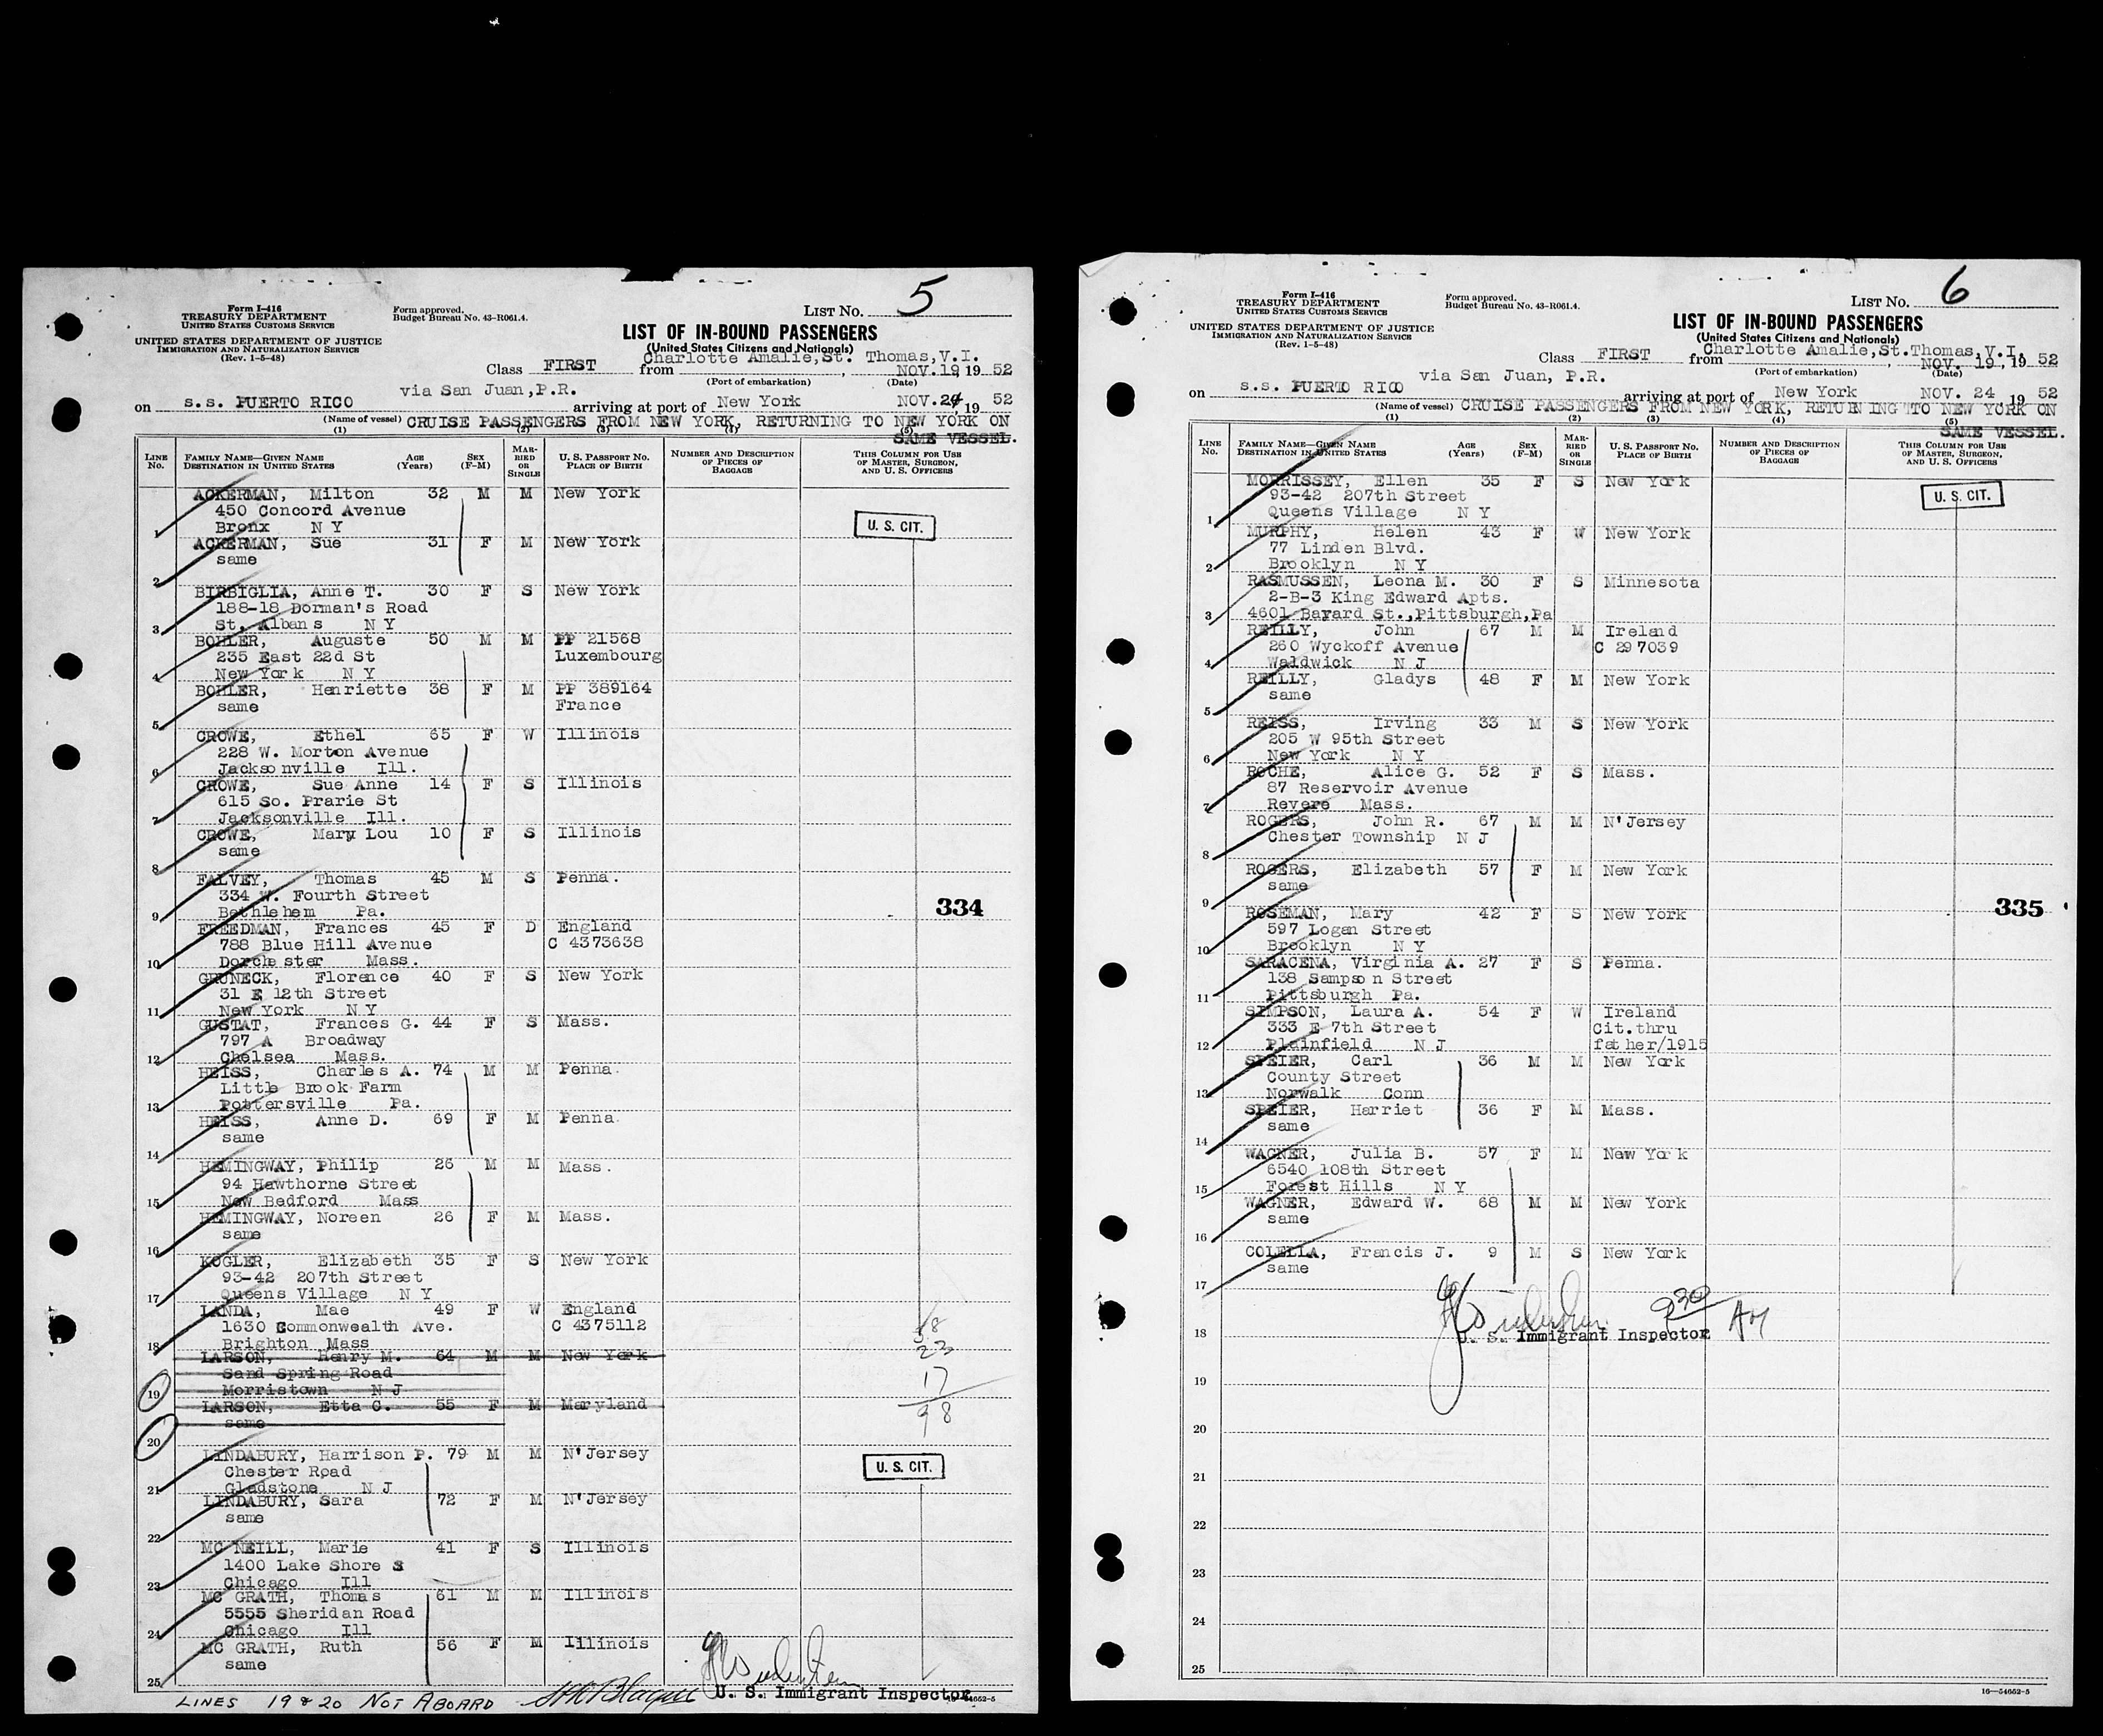 Form I-416
TREASURY DEPARTMENT
UNITED STATES CUSTOMS SERVICE
UNITED STATES DEPARTMENT OF JUSTICE
IMMIGRATION AND NATURALIZATION SERVICE
(Rev. 1-5-48)
Form approved.
Budget Bureau No. 43-R061.4.
LIST No. 5
LIST OF IN-BOUND PASSENGERS
(United States Citizens and Nationals)
Class FIRST from Charlotte Amalie, St. Thomas, V.I. NOV. 19, 19 52
(Port of embarkation) (Date)
via San Juan, P.R.
on s.s. PUERTO RICO arriving at port of New York NOV. 24, 19 52
(Name of vessel) CRUISE PASSENGERS FROM NEW YORK, RETURNING TO NEW YORK ON
SAME VESSEL.
(1) (2) (3) (4) (5)
LINE No. FAMILY NAME—GIVEN NAME DESTINATION IN UNITED STATES AGE (Years) SEX (F-M) MARRIED OR SINGLE U. S. PASSPORT NO. PLACE OF BIRTH NUMBER AND DESCRIPTION OF PIECES OF BAGGAGE THIS COLUMN FOR USE OF MASTER, SURGEON, AND U. S. OFFICERS
ACKERMAN, Milton 32 M M New York
450 Concord Avenue
1 Bronx N Y
U. S. CIT.
ACKERMAN, Sue 31 F M New York
same
2
BIRBIGLIA, Anne T. 30 F S New York
188-18 Dorman's Road
3 St. Albans N Y
BOHLER, Auguste 50 M M PP 21568
235 East 22d St Luxembourg
4 New York N Y
BOHLER, Henriette 38 F M PP 389164
same France
5
CROWE, Ethel 65 F W Illinois
228 W. Morton Avenue
6 Jacksonville Ill.
CROWE, Sue Anne 14 F S Illinois
615 So. Prarie St
7 Jacksonville Ill.
CROWE, Mary Lou 10 F S Illinois
same
8
FALVEY, Thomas 45 M S Penna.
334 W. Fourth Street
9 Bethlehem Pa.
334
FREEDMAN, Frances 45 F D England
788 Blue Hill Avenue C 4373638
10 Dorchester Mass.
GRUNECK, Florence 40 F S New York
31 E 12th Street
11 New York N Y
GUSTAT, Frances G. 44 F S Mass.
797 A Broadway
12 Chelsea Mass.
HEISS, Charles A. 74 M M Penna.
Little Brook Farm
13 Pottersville Pa.
HEISS, Anne D. 69 F M Penna.
same
14
HEMINGWAY, Philip 26 M M Mass.
94 Hawthorne Street
15 New Bedford Mass
HEMINGWAY, Noreen 26 F M Mass.
same
16
KOGLER, Elizabeth 35 F S New York
93-42 207th Street
17 Queens Village N Y
LANDA, Mae 49 F W England
1630 Commonwealth Ave. C 4375112
18 Brighton Mass
LARSON, Henry M. 64 M M New York
Sand Spring Road
19 Morristown N J
LARSON, Etta C. 55 F M Maryland
same
20
58
23
17
98
LINDABURY, Harrison P. 79 M M N'Jersey
Chester Road
21 Gladstone N J
U. S. CIT.
LINDABURY, Sara 72 F M N'Jersey
same
22
MC NEILL, Marie 41 F S Illinois
1400 Lake Shore S
23 Chicago Ill
MC GRATH, Thomas 61 M M Illinois
5555 Sheridan Road
24 Chicago Ill
MC GRATH, Ruth 56 F M Illinois
same
25
LINES 19 & 20 NOT ABOARD
U. S. Immigrant Inspector
Form I-416
TREASURY DEPARTMENT
UNITED STATES CUSTOMS SERVICE
UNITED STATES DEPARTMENT OF JUSTICE
IMMIGRATION AND NATURALIZATION SERVICE
(Rev. 1-5-48)
Form approved.
Budget Bureau No. 43-R061.4.
LIST No. 6
LIST OF IN-BOUND PASSENGERS
(United States Citizens and Nationals)
Class FIRST from Charlotte Amalie, St. Thomas, V.I. NOV. 19, 19 52
(Port of embarkation) (Date)
via San Juan, P.R.
on s.s. PUERTO RICO arriving at port of New York NOV. 24 19 52
(Name of vessel) CRUISE PASSENGERS FROM NEW YORK, RETURNING TO NEW YORK ON
SAME VESSEL.
(1) (2) (3) (4) (5)
LINE No. FAMILY NAME—GIVEN NAME DESTINATION IN UNITED STATES AGE (Years) SEX (F-M) MARRIED OR SINGLE U. S. PASSPORT NO. PLACE OF BIRTH NUMBER AND DESCRIPTION OF PIECES OF BAGGAGE THIS COLUMN FOR USE OF MASTER, SURGEON, AND U. S. OFFICERS
MORRISSEY, Ellen 35 F S New York
93-42 207th Street
1 Queens Village N Y
U. S. CIT.
MURPHY, Helen 43 F W New York
77 Linden Blvd.
2 Brooklyn N Y
RASMUSSEN, Leona M. 30 F S Minnesota
2-B-3 King Edward Apts.
3 4601 Bayard St., Pittsburgh, Pa
REILLY, John 67 M M Ireland
260 Wyckoff Avenue C 297039
4 Waldwick N J
REILLY, Gladys 48 F M New York
same
5
REISS, Irving 33 M S New York
205 W 95th Street
6 New York N Y
ROCHE, Alice G. 52 F S Mass.
87 Reservoir Avenue
7 Revere Mass.
ROGERS, John R. 67 M M N'Jersey
Chester Township N J
8
ROGERS, Elizabeth 57 F M New York
same
9
335
ROSEMAN, Mary 42 F S New York
597 Logan Street
10 Brooklyn N Y
SARACENA, Virginia A. 27 F S Penna.
138 Sampson Street
11 Pittsburgh Pa.
SIMPSON, Laura A. 54 F W Ireland
333 E 7th Street Cit. thru
12 Plainfield N J father/1915
SPEIER, Carl 36 M M New York
County Street
13 Norwalk Conn
SPEIER, Harriet 36 F M Mass.
same
14
WAGNER, Julia B. 57 F M New York
6540 108th Street
15 Forest Hills N Y
WAGNER, Edward W. 68 M M New York
same
16
COLELLA, Francis J. 9 M S New York
same
17
930 AM
18 U. S. Immigrant Inspector
19
20
21
22
23
24
25
16—54652-5